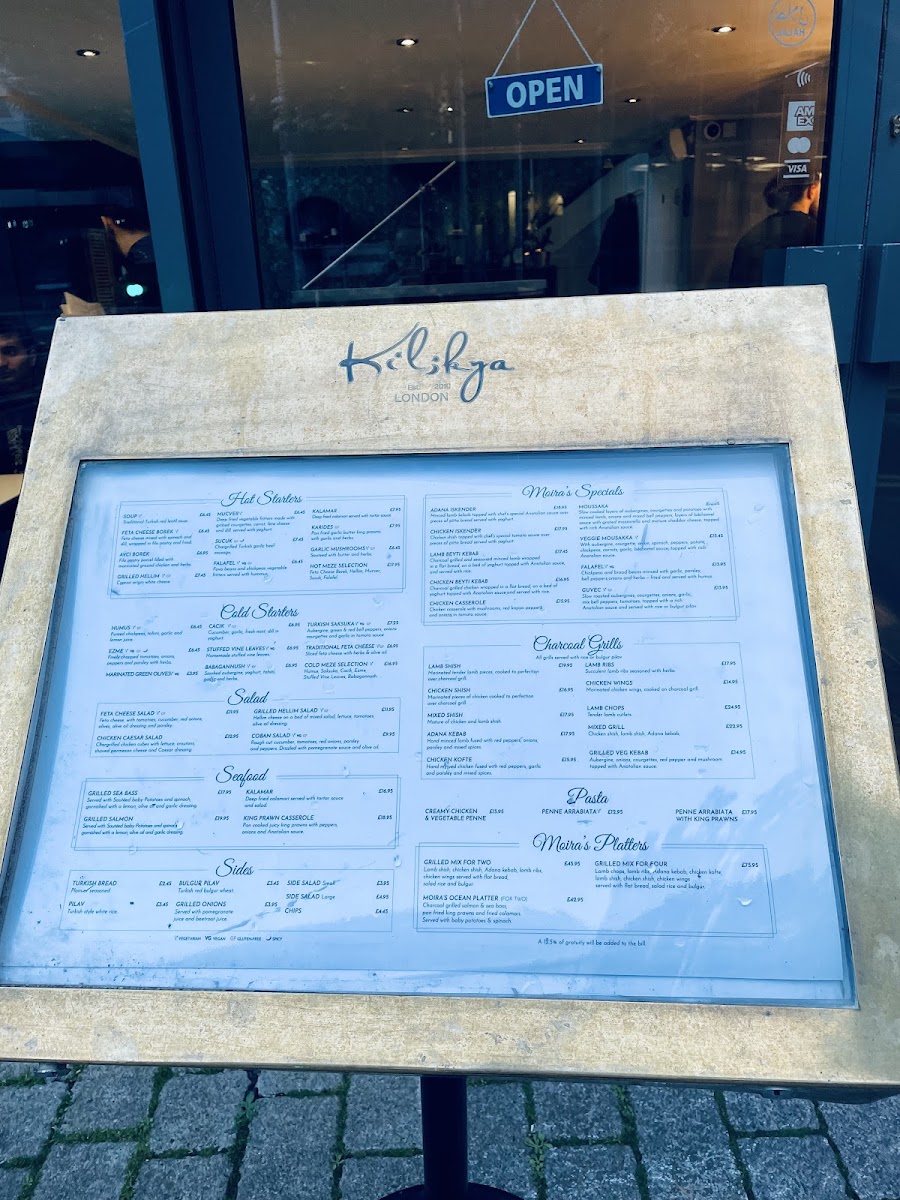 OPEN
HALAL
AM
EX
VISA
Kilikya
Est. 2010
LONDON
Hot Starters
SOUP V £6.45
Traditional Turkish red lentil soup.
FETA CHEESE BOREK V £6.45
Feta cheese mixed with spinach and
dill, wrapped in filo pastry and fried.
AVCI BOREK £6.95
Filo pastry parcel filled with
seasoned ground chicken and herbs
GRILLED HELLIM V GF £7.45
Cypriot origin white cheese
MUCVER V £6.45
Deep fried vegetable fritters made with
grated courgettes, carrot, feta cheese
and dill, served with yoghurt
SUCUK £7.45
Chargrilled Turkish garlic beef
sausage
FALAFEL V £6.45
Fava beans and chickpeas vegetable
fritters served with hummus
KALAMAR £7.95
Deep fried calamari served with tartar sauce
KARIDES GF £7.95
Pan fried garlic butter king prawns
with garlic and herbs
GARLIC MUSHROOMS V GF £6.45
Sauteed with butter and herbs
HOT MEZE SELECTION £17.95
Feta Cheese Borek, Hellim, Mucver,
Sucuk, Falafel
Cold Starters
HUMUS V £6.45
Pureed chickpeas, tahini, garlic and
lemon juice
EZME V £6.45
Finely chopped tomatoes, onions,
peppers and parsley with herbs.
MARINATED GREEN OLIVES V £3.95
CACIK V GF £6.95
Cucumber, garlic, fresh mint, dill in
yoghurt
STUFFED VINE LEAVES V £6.95
Homemade stuffed vine leaves
BABAGANNUSH V GF £6.95
Smoked aubergine, yoghurt, tahini,
garlic and herbs.
TURKISH SAKSUKA V £7.25
Aubergine, green & red bell peppers, onions
courgettes and garlic in tomato sauce
TRADITIONAL FETA CHEESE V GF £6.95
Sliced feta cheese with herbs & olive oil
COLD MEZE SELECTION V £16.95
Humus, Saksuka, Cacik, Ezme,
Stuffed Vine Leaves, Babagannush.
Salad
FETA CHEESE SALAD V GF £11.95
Feta cheese with tomatoes, cucumber, red onions,
olives, olive oil dressing and parsley
CHICKEN CAESAR SALAD £12.95
Chargrilled chicken cubes with lettuce, croutons,
shaved parmesan cheese and Caesar dressing.
GRILLED HELLIM SALAD V GF £11.95
Hellim cheese on a bed of mixed salad, lettuce, tomatoes,
olive oil dressing.
COBAN SALAD V £9.95
Rough cut cucumber, tomatoes, red onions, parsley
and peppers. Drizzled with pomegranate sauce and olive oil.
Seafood
GRILLED SEA BASS £17.95
Served with Sautéed baby Potatoes and spinach,
garnished with a lemon, olive oil and garlic dressing.
GRILLED SALMON £19.95
Served with Sautéed baby Potatoes and spinach
garnished with a lemon, olive oil and garlic dressing.
KALAMAR £16.95
Deep fried calamari served with tartar sauce
and salad.
KING PRAWN CASSEROLE £18.95
Pan cooked juicy king prawns with peppers,
onions and Anatolian sauce.
Sides
TURKISH BREAD £2.45
Plain or seasoned
PILAV £3.45
Turkish style white rice.
BULGUR PILAV £3.45
Turkish red bulgur wheat.
GRILLED ONIONS £5.95
Served with pomegranate
juice and beetroot juice.
SIDE SALAD Small £3.95
SIDE SALAD Large £4.95
CHIPS £4.45
V VEGETARIAN VG VEGAN GF GLUTEN FREE SPICY
Moira's Specials
ADANA ISKENDER £18.95
Minced lamb kebab topped with chef's special Anatolian sauce over
pieces of pitta bread served with yoghurt
CHICKEN ISKENDER £17.95
Chicken shish topped with chef's special tomato sauce over
pieces of pitta bread served with yoghurt
LAMB BEYTI KEBAB £17.45
Charcoal grilled and seasoned minced lamb wrapped
in a flat bread, on a bed of yoghurt topped with Anatolian sauce,
served with rice.
CHICKEN BEYTI KEBAB £16.95
Charcoal grilled chicken, wrapped in a flat bread, on a bed of
yoghurt topped with Anatolian sauce, served with rice.
CHICKEN CASSEROLE £15.95
Chicken casserole with mushrooms, red kapya peppers,
and onions in tomato sauce
MOUSSAKA
Slow cooked layers of aubergines, courgettes and potatoes with
minced lamb, onions and mixed bell peppers, layers of béchamel
sauce with grated mozzarella and mature cheddar cheese, topped
with rich Anatolian sauce
VEGGIE MOUSAKKA V £15.45
With aubergine, courgette, onion, spinach, peppers, potato,
chickpeas, carrots, garlic, béchamel sauce, topped with rich
Anatolian sauce
FALAFEL V £15.95
Chickpeas and broad beans minced with garlic, parsley,
bell peppers, onions and herbs - fried and served with humus
GUVEC V £15.95
Slow roasted aubergines, courgettes, onions, garlic,
mix bell peppers, tomatoes, topped with a rich
Anatolian sauce and served with rice or bulgur pilav.
Charcoal Grills
All grills served with rice or bulgur pilav
LAMB SHISH £19.95
Marinated tender lamb pieces, cooked to perfection
over charcoal grill.
CHICKEN SHISH £16.95
Marinated pieces of chicken cooked to perfection
over charcoal grill
MIXED SHISH £17.95
Mixture of chicken and lamb shish
ADANA KEBAB £17.95
Hand minced lamb fused with red peppers, onions,
parsley and mixed spices.
CHICKEN KOFTE £15.95
Hand minced chicken fused with red peppers, garlic
and parsley and mixed spices.
LAMB RIBS £17.95
Succulent lamb ribs seasoned with herbs.
CHICKEN WINGS £14.95
Marinated chicken wings, cooked on charcoal grill.
LAMB CHOPS £24.95
Tender lamb cutlets.
MIXED GRILL £22.95
Chicken shish, lamb shish, Adana kebab,
GRILLED VEG KEBAB £14.95
Aubergine, onions, courgettes, red pepper and mushroom
topped with Anatolian sauce.
Pasta
CREAMY CHICKEN £15.95
& VEGETABLE PENNE
PENNE ARRABIATA V £12.95
PENNE ARRABIATA £17.95
WITH KING PRAWNS
Moira's Platters
GRILLED MIX FOR TWO £45.95
Lamb shish, chicken shish, Adana kebab, lamb ribs,
chicken wings served with flat bread,
salad rice and bulgur.
MOIRA'S OCEAN PLATTER (FOR TWO) £42.95
Charcoal grilled salmon & sea bass,
pan fried king prawns and fried calamari.
Served with baby potatoes & spinach.
GRILLED MIX FOR FOUR £75.95
Lamb chops, lamb ribs, Adana kebab, chicken kofte,
lamb shish, chicken shish, chicken wings
served with flat bread, salad, rice and bulgur.
A 12.5% of gratuity will be added to the bill.